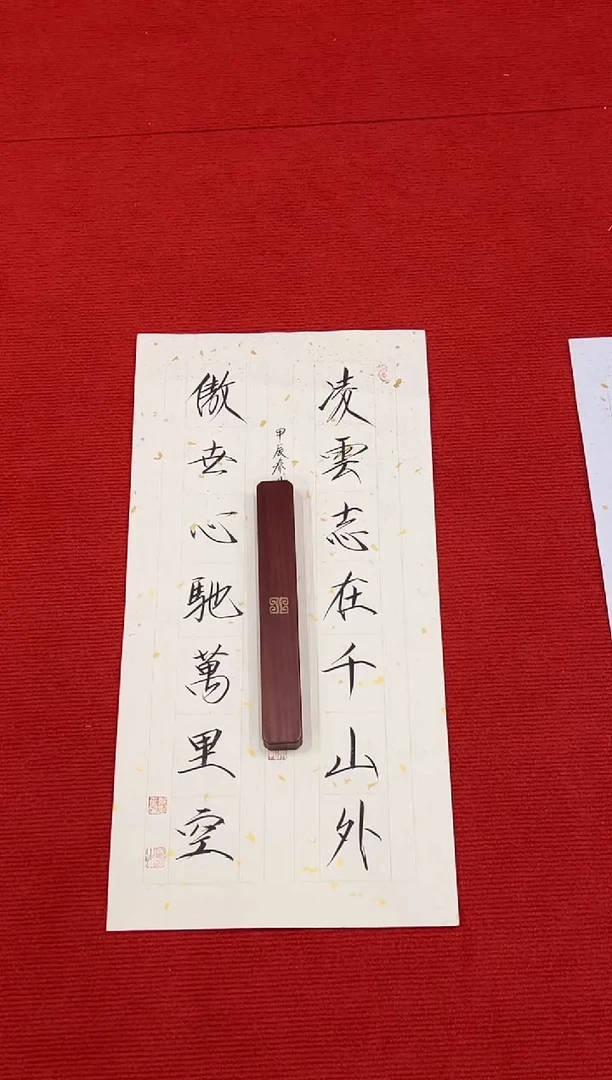 凌雲志在千山外
甲辰春
傲世心馳萬里空